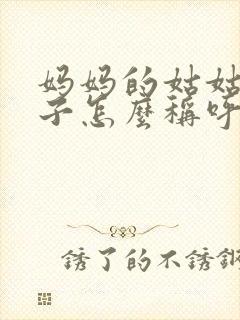 妈妈的姑姑
子怎麼稱呼
銹了的不銹鋼